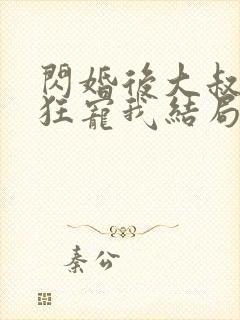 閃婚後大叔
狂寵我結局
秦公